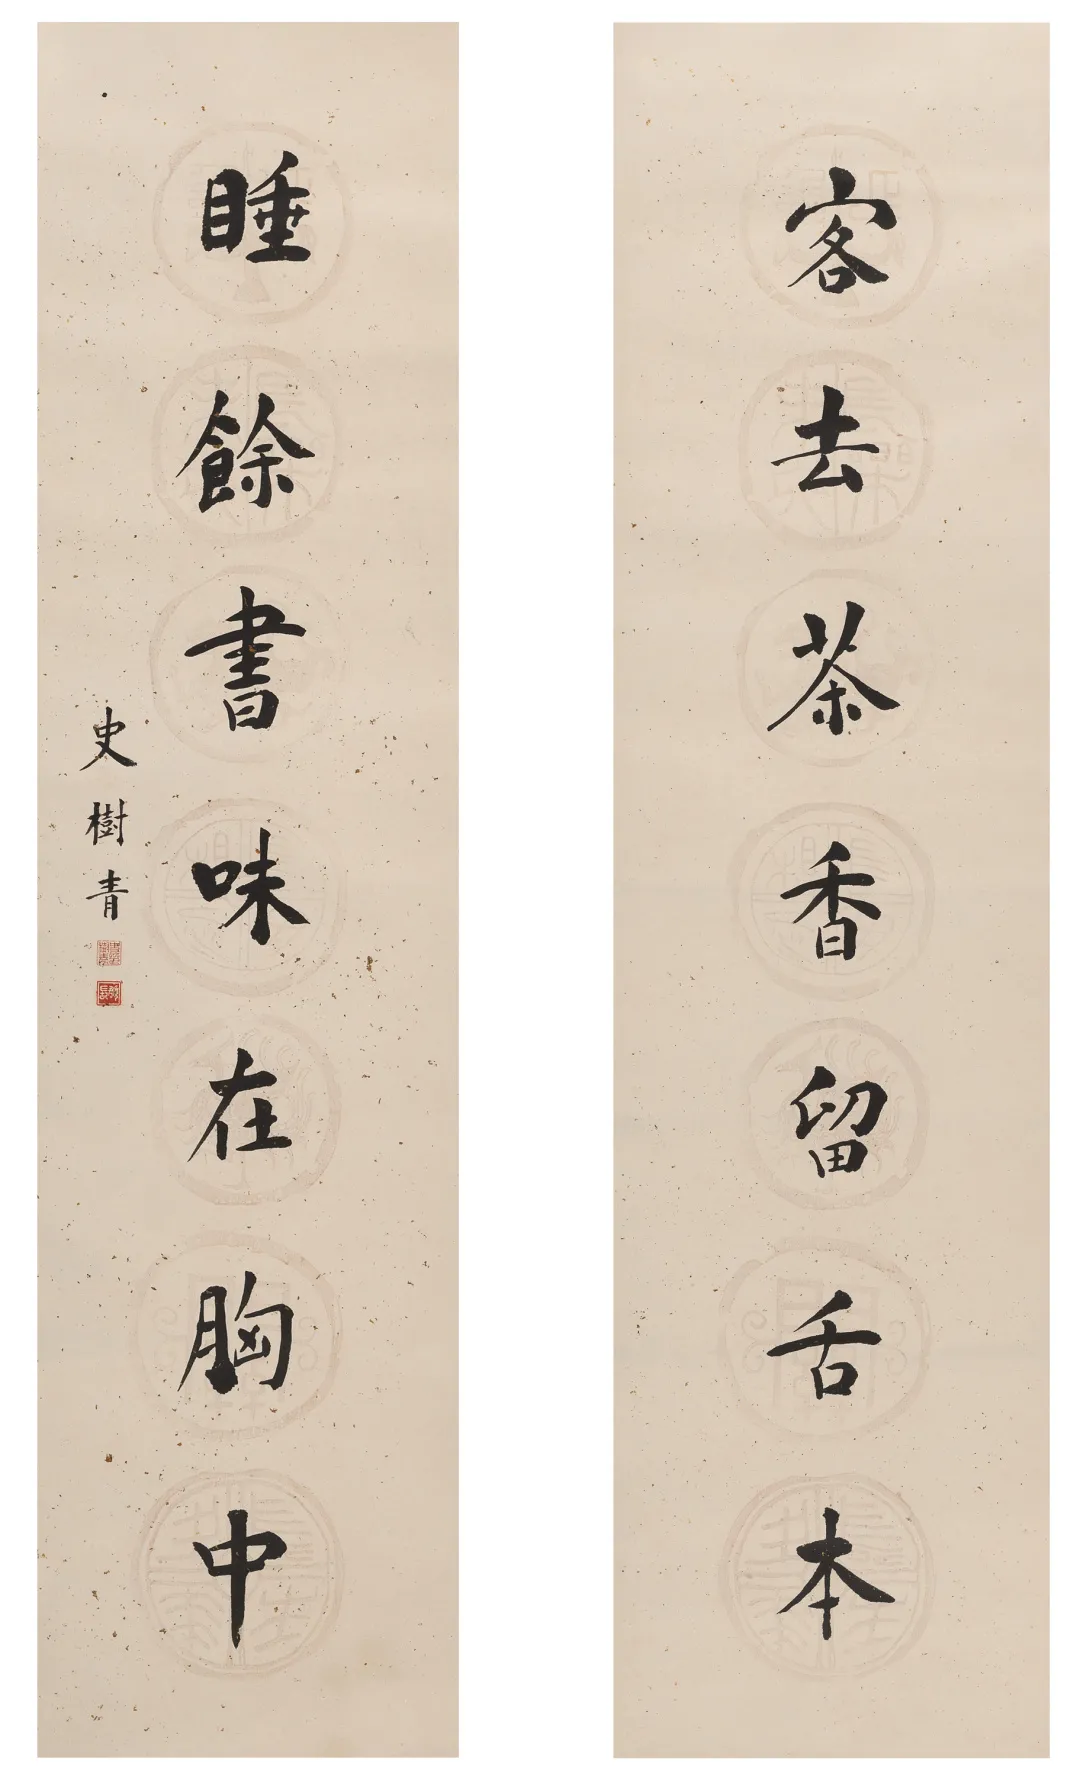 客去茶香留舌本
睡餘書味在胸中
史樹青